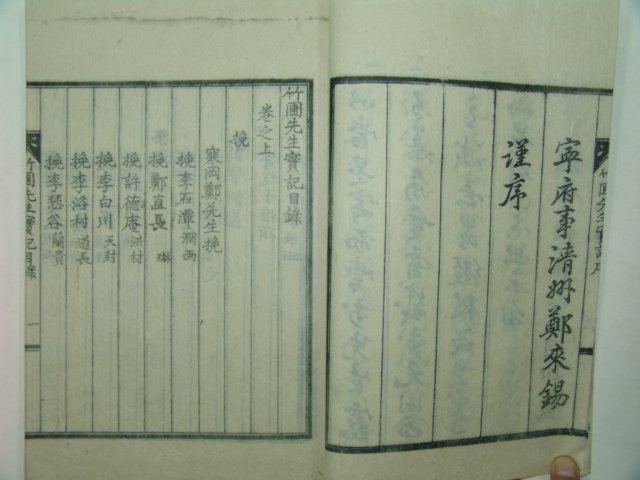 寧府事淸州鄭來錫
謹序
竹圃先生實記序
竹圃先生實記目錄
卷之上
挽
寒岡鄭先生挽
挽李石潭 潤雨
挽鄭直長 琳
挽許德庵 洪材
挽李白川 天封
挽李洛村 道長
挽李 谷 蘭貴
竹圃先生實記目錄 一